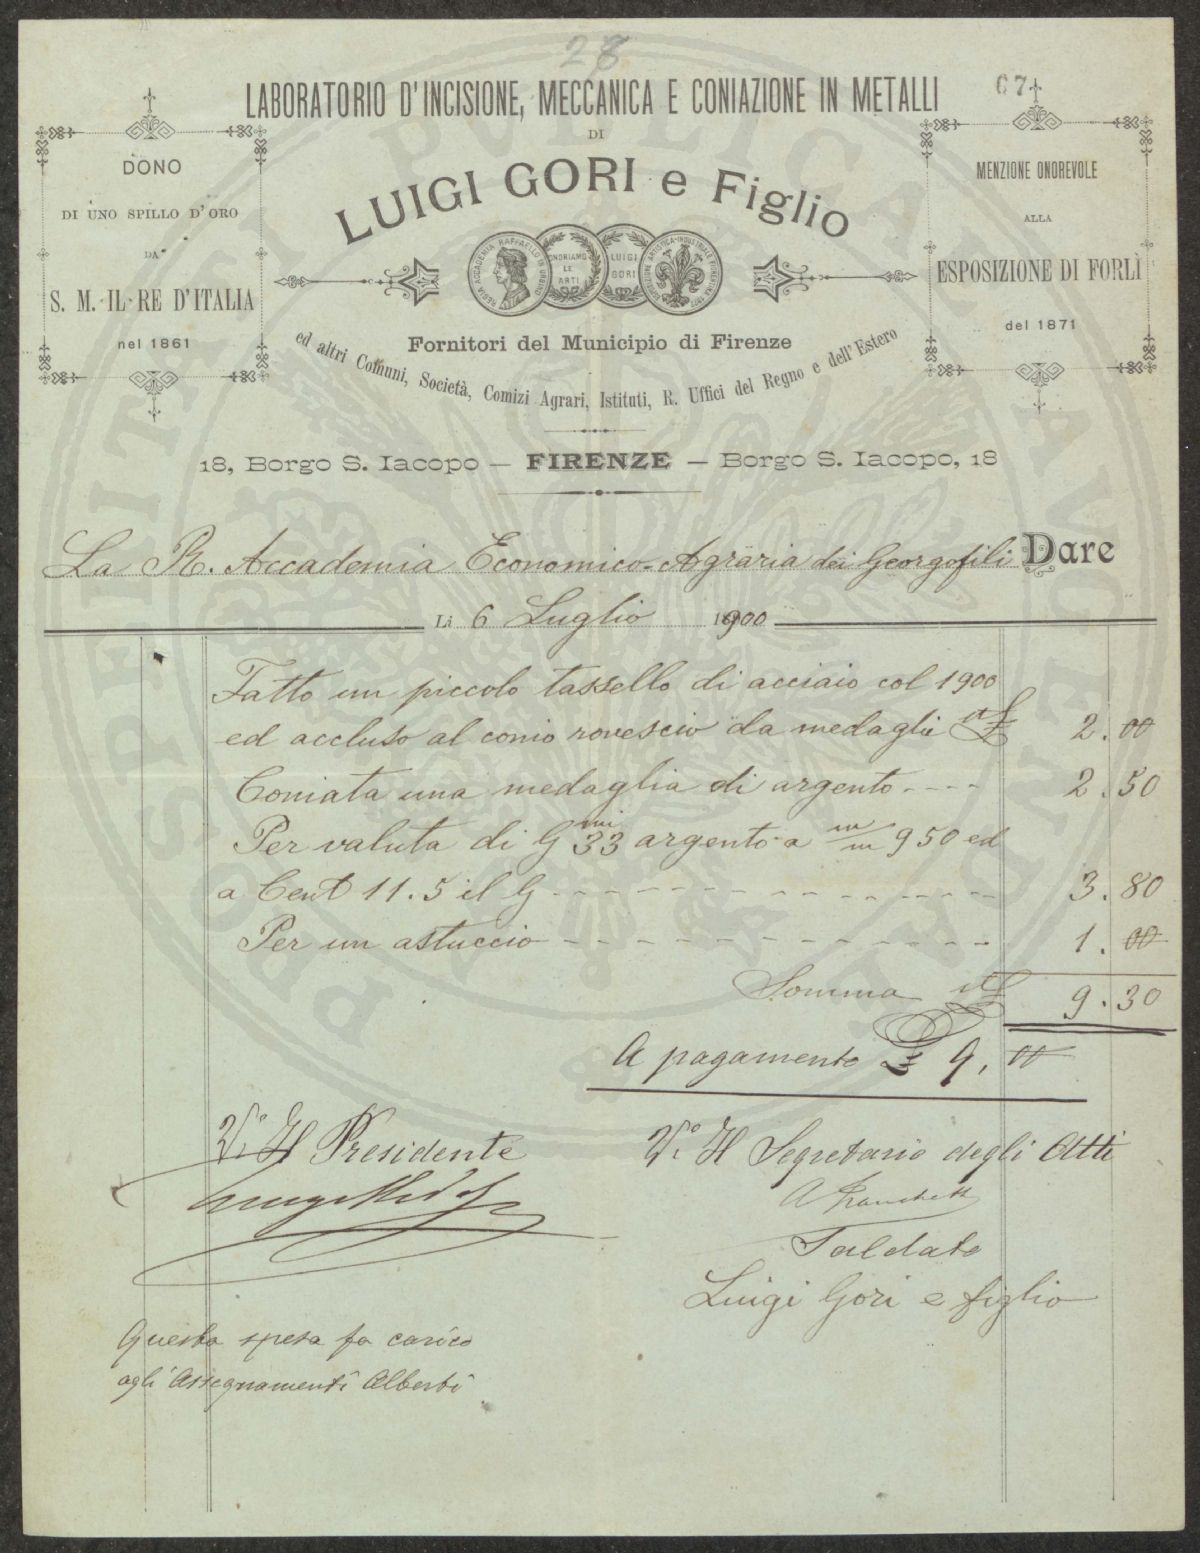 28
67
LABORATORIO D'INCISIONE, MECCANICA E CONIAZIONE IN METALLI
DI
LUIGI GORI e Figlio
DONO
DI UNO SPILLO D'ORO
DA
S. M. IL RE D'ITALIA
nel 1861
REGIA ACCADEMIA RAFFAELLO IN URBINO
ONORIAMO
LE
ARTI
LUIGI
GORI
MENZIONE ONOREVOLE
ALLA
ESPOSIZIONE DI FORLÌ
del 1871
Fornitori del Municipio di Firenze
ed altri Comuni, Società, Comizi Agrari, Istituti, R. Uffici del Regno e dell'Estero
18, Borgo S. Iacopo — FIRENZE — Borgo S. Iacopo, 18
La R. Accademia Economico-Agraria dei Georgofili Dare
Lì 6 Luglio 1900
Fatto un piccolo tassello di acciaio col 1900
ed accluso al conio rovescio da medaglie it£ 2.00
Coniata una medaglia di argento 2.50
Per valuta di G mi 33 argento a m/m 950 ed
a Cent 11.5 il G 3.80
Per un astuccio 1.00
Somma it£ 9.30
A pagamento £ 9,00
V.o Il Presidente
V.o Il Segretario degli Atti
Saldato
Luigi Gori e figlio
Questa spesa fa carico
agli Assegnamenti Alberti
PROSPERITATI PUBLICAE AUGENDAE